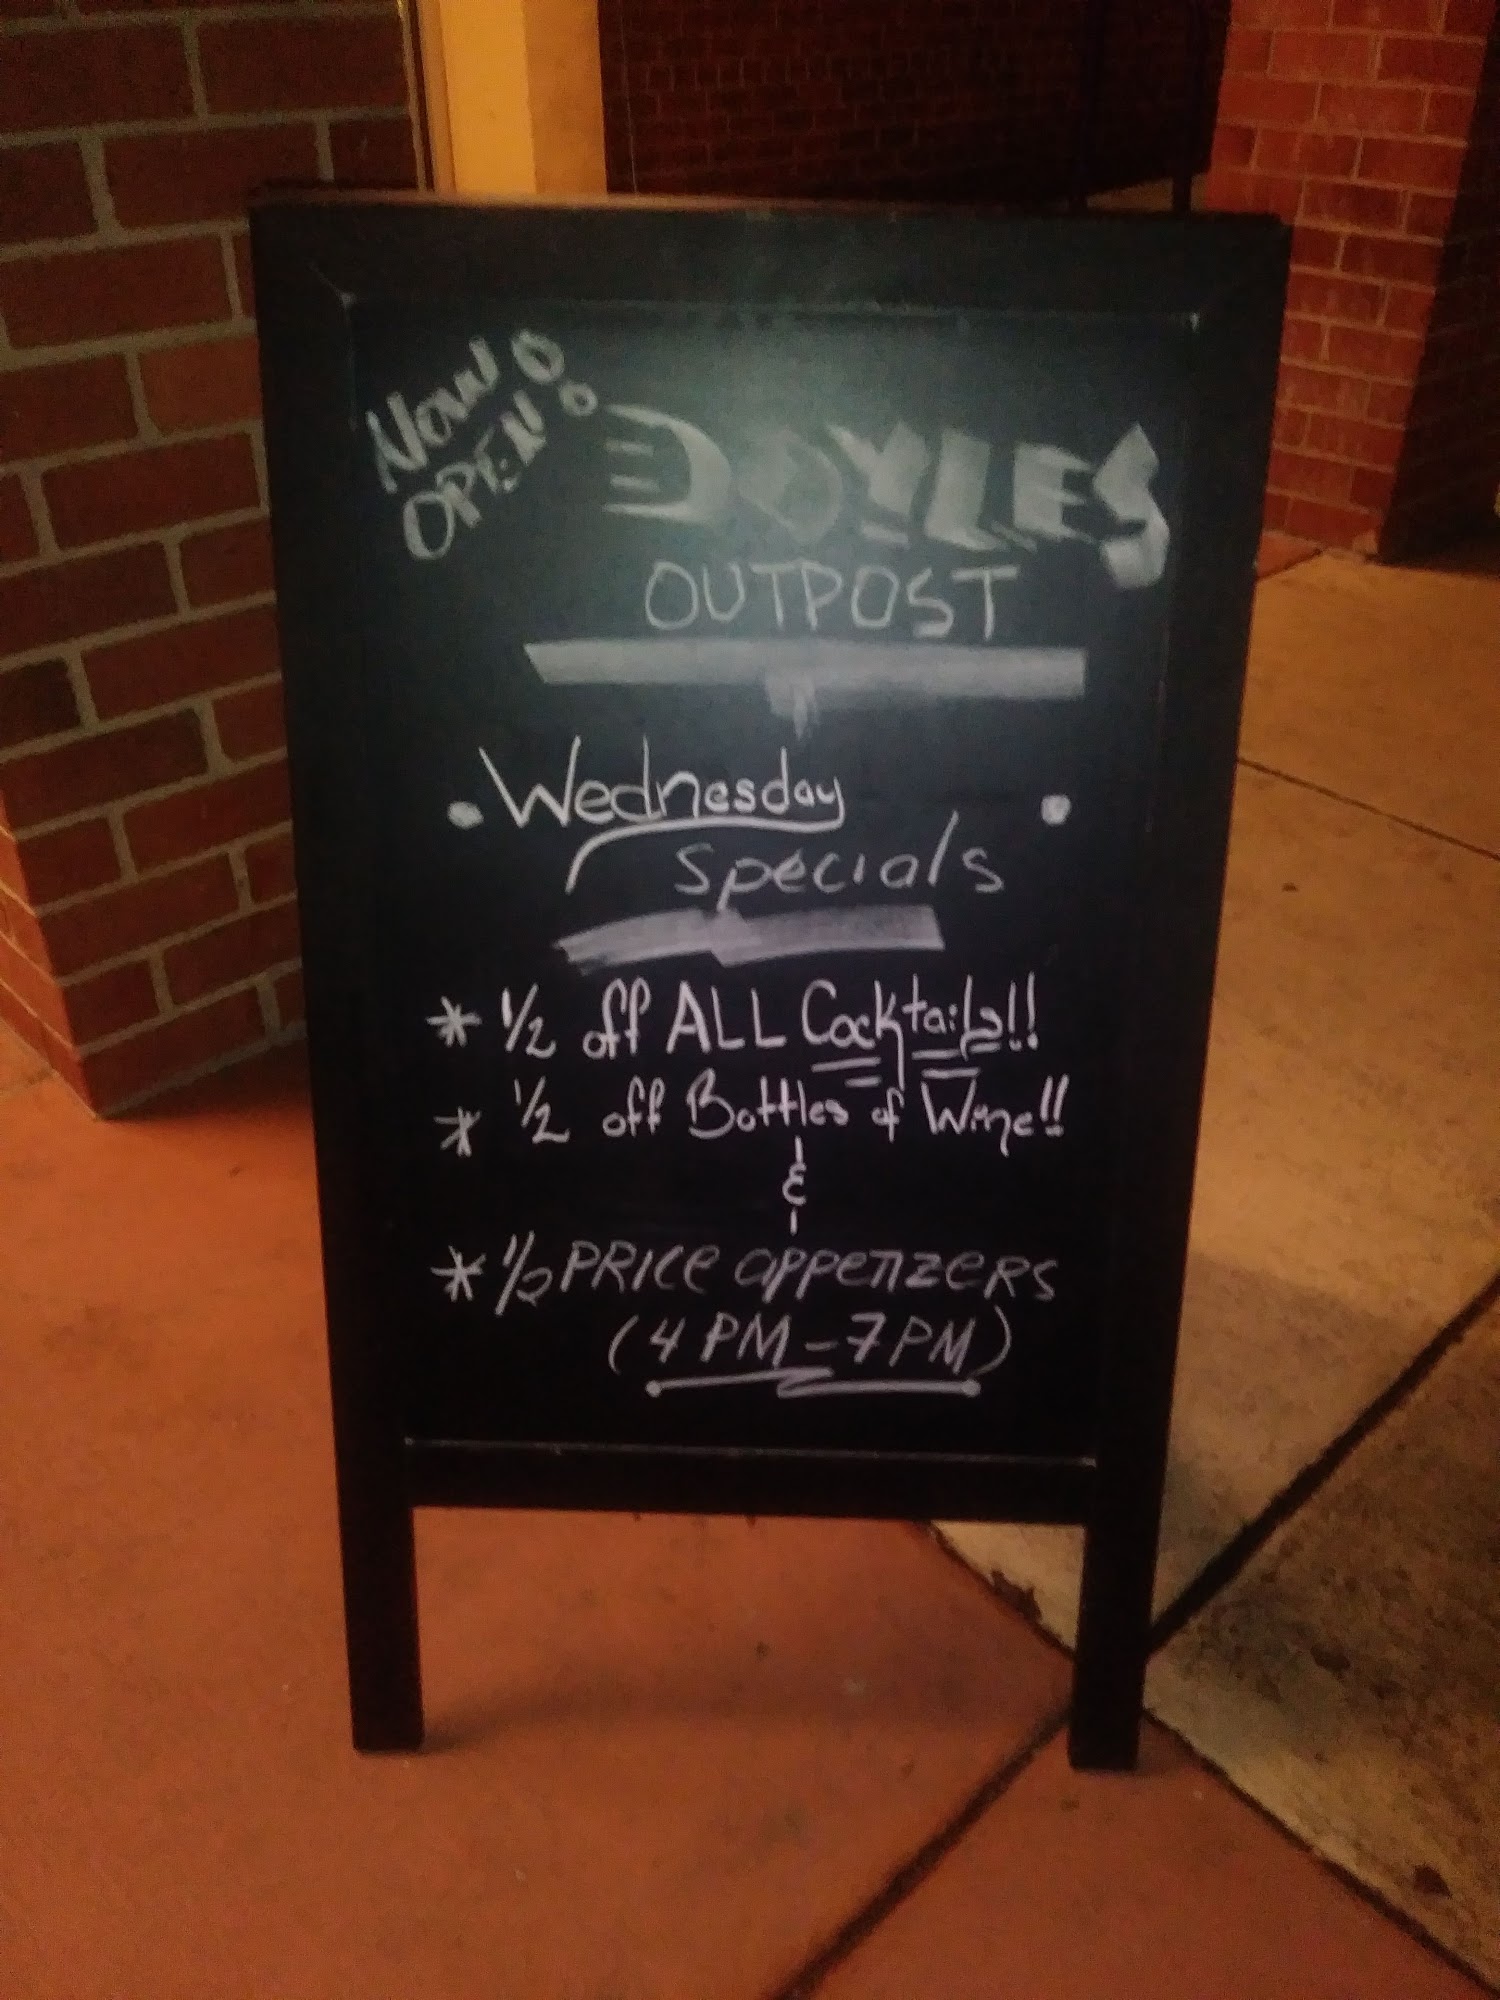 Now
OPEN
DOYLES
OUTPOST
Wednesday
Specials
* 1/2 off ALL Cocktails!!
* 1/2 off Bottles of Wine!!
&
* 1/2 PRICE appetizers
(4 PM - 7 PM)